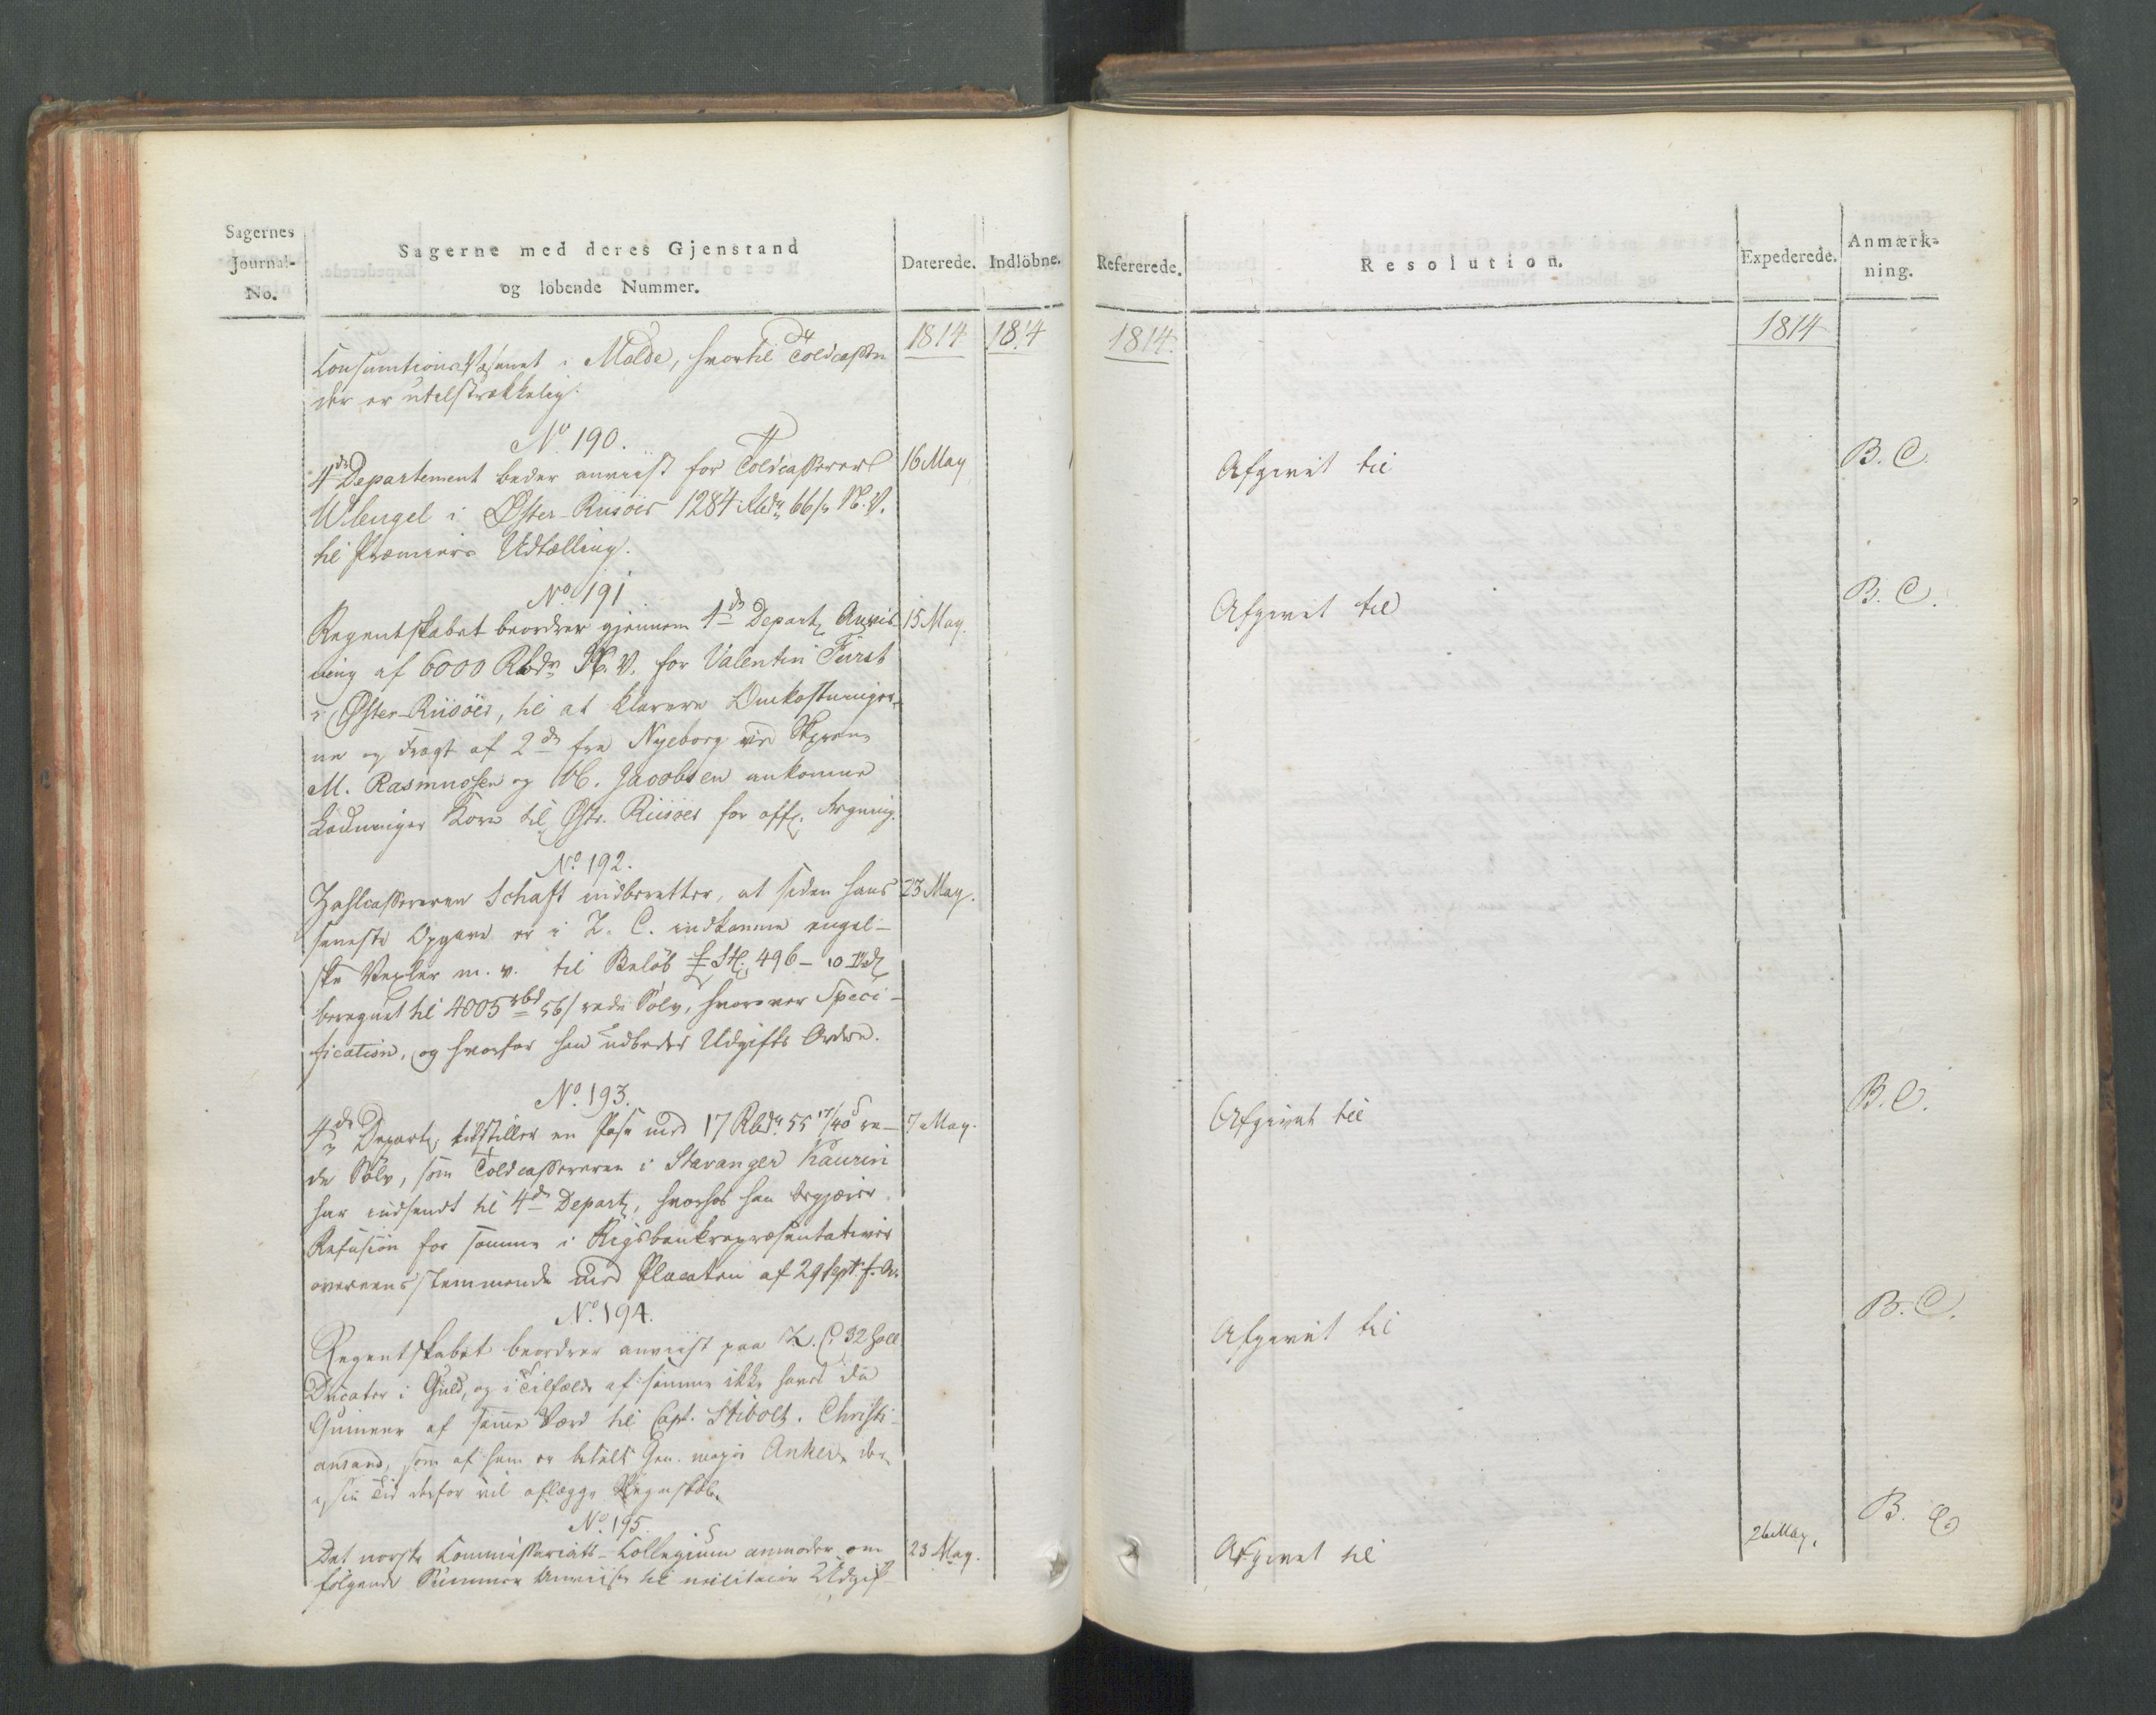 Sagernes
Journal-
No.
Sagerne med deres Gjenstand
og løbende Nummer.
Daterede.
Indløbne.
1814
1814
Consumtions Væsenet i Molde, hvortil Toldcassen
der er utilstrækkelig.
No 190.
4de Departement beder anviist for Toldcasserer
Wleugel i Øster-Riisöer 1284 Rbdr 66 s N. V.
til Præmiers Udtælling.
16 May
No 191
Regentskabet beordrer gjennem 4de Depart Anvis-
ning af 6000 Rbdr N. V. for Valentin Fürst
i Øster-Riisöer, til at klarere Omkostninger-
ne og Fragt af 2de fra Nyeborg ved Skprne
M. Rasmussen og Jacobsen ankomne
Ladninger Korn til Østr. Riisöer for off. Regning.
15 May.
No 192.
Zahlcassereren Schaft indberetter, at siden hans
seneste Opgave er i Z. C. indkomne engel-
ske Vexler m. v. til Beløb £ Stl. 496 - 10
beregnet til 4005 rbd 56 s rede Sölv, hvorover Speci-
fication, og hvorfor han udbeder Udgifts Ordre.
23 May.
No 193.
4de Depart tilstiller en Pose med 17 Rbdr 55 17/40 s re-
de Sölv, som Toldcassereren i Stavanger Kaurin
har indsendt til 4de Depart, hvorhos han begjærer
Refusion for samme i Rigsbankrepræsentativer
overeensstemmende med Placaten af 29 Sept. f. A.
7 May.
No 194.
Regentskabet beordrer anviist paa Z. C. 32 holl
Ducater i Guld, og i Tilfælde af samme ikke haves da
Guineer af samme Værd til Capt. Stibolt. Christi-
ansand, som af ham er betalt Gen. major Anker, der
i sin Tid derfor vil aflægge Regnskab.
No 195.
Det norske Commissariats-Collegium anmoder om
følgende Summer anviiste til militaire Udgif-
23 May.
Refererede.
Resolution.
Expederede.
Anmærk-
ning.
1814.
1814
Afgivet til
B. C.
Afgivet til
B. C.
Afgivet til
B. C.
Afgivet til
B. C.
Afgivet til
26 May.
B. C.